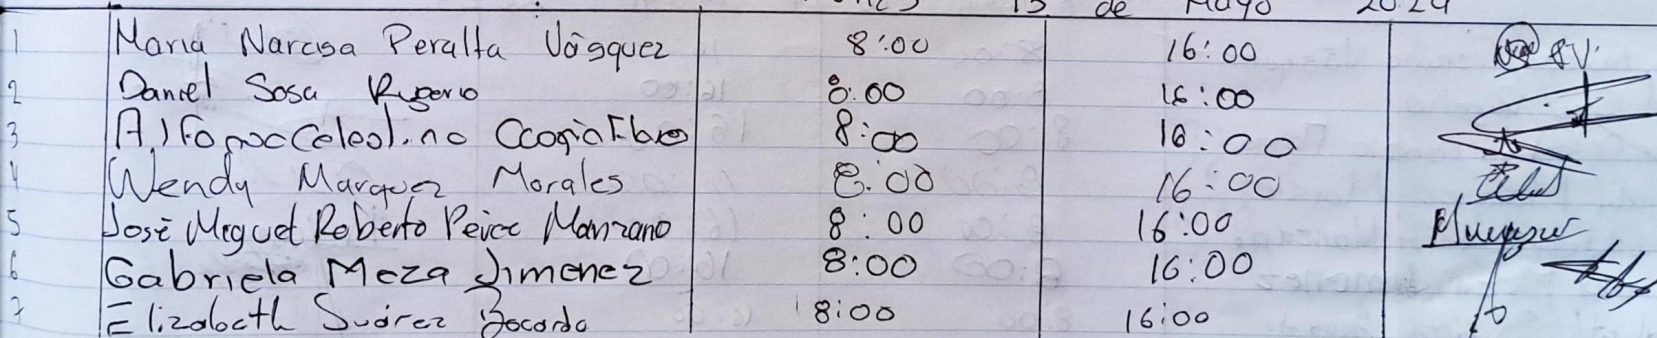 13 de Mayo 2024
1 Maria Narcisa Peralta Vásquez 8:00 16:00
2 Daniel Sosa Rugerio 8:00 16:00
3 8:00 16:00
4 Wendy Marquez Morales 8:00 16:00
5 José Miguel Roberto Manzano 8:00 16:00
6 Gabriela Meza Jimenez 8:00 16:00
7 Elizabeth Suárez 8:00 16:00